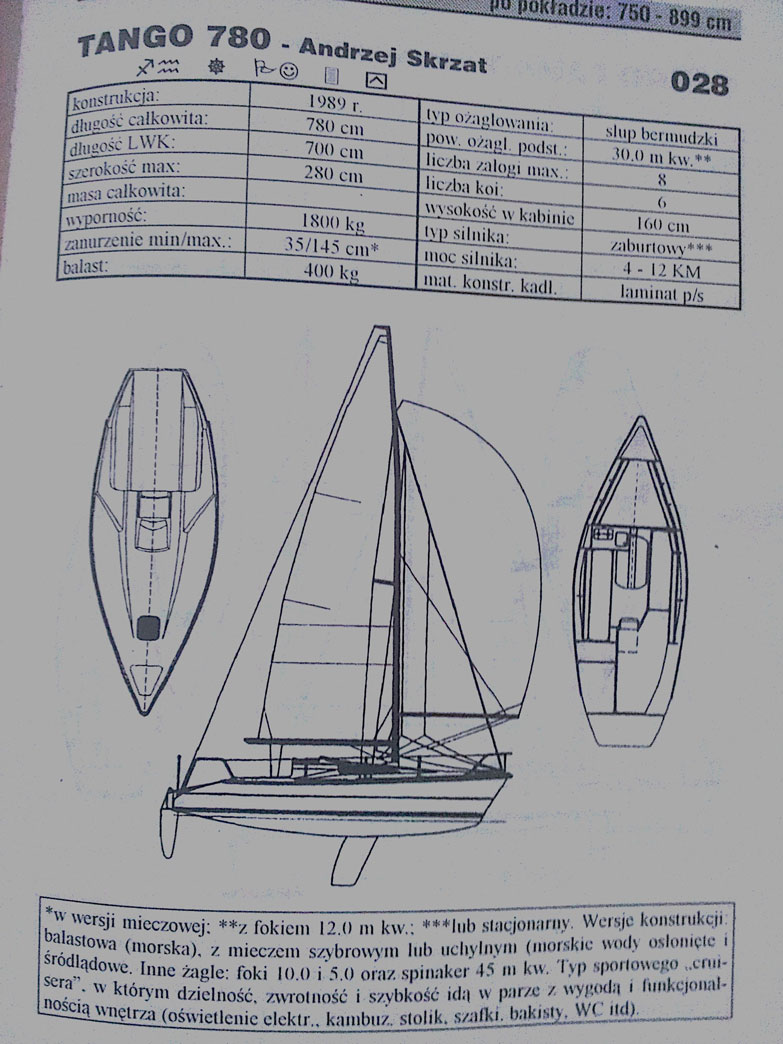 po pokładzie: 750 - 899 cm
TANGO 780 - Andrzej Skrzat
028
konstrukcja: 1989 r.
długość całkowita: 780 cm
długość LWK: 700 cm
szerokość max: 280 cm
masa całkowita:
wyporność: 1800 kg
zanurzenie min/max.: 35/145 cm*
balast: 400 kg
typ ożaglowania: slup bermudzki
pow. ożagl. podst.: 30.0 m kw.**
liczba załogi max.: 8
liczba koi: 6
wysokość w kabinie 160 cm
typ silnika: zaburtowy***
moc silnika: 4 - 12 KM
mat. konstr. kadł. laminat p/s
*w wersji mieczowej; **z fokiem 12.0 m kw.; ***lub stacjonarny. Wersje konstrukcji:
balastowa (morska), z mieczem szybrowym lub uchylnym (morskie wody osłonięte i
śródlądowe. Inne żagle: foki 10.0 i 5.0 oraz spinaker 45 m kw. Typ sportowego „crui-
sera”, w którym dzielność, zwrotność i szybkość idą w parze z wygodą i funkcjonal-
nością wnętrza (oświetlenie elektr., kambuz, stolik, szafki, bakisty, WC itd).